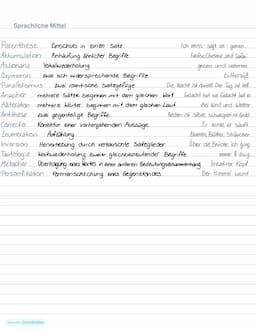 Sprachliche Mittel
Parenthese Einschub in einen Satz
Akkumulation Anhäufung ähnlicher Begriffe
Assonanz Vokalwiederholung
Oxymoron zwei sich widersprechende Begriffe Bittersüß
Parallelismus zwei identische Satzgefüge Die Nacht ist dunkel. Der Tag ist hell.
Anapher mehrere Sätze beginnen mit dem gleichen Wort
Alliteration mehrere Wörter beginnen mit dem gleichen Laut Bei Wind und Wetter
Antithese zwei gegenteilige Begriffe Reden ist silber, schweigen ist Gold
Correctio Korrektur einer vorhergehenden Aussage
Enumeration Aufzählung Blumen, Blätter, Sträucher
Inversion Hervorhebung durch vertauschte Satzglieder Über die Brücke ich ging
Tautologie Wortwiederholung zweier gleichbedeutender Begriffe immer & ewig
Metapher Übertragung eines Wortes in einen anderen Bedeutungszusammenhang
Personifikation Vermenschlichung eines Gegenstandes Der Himmel weint